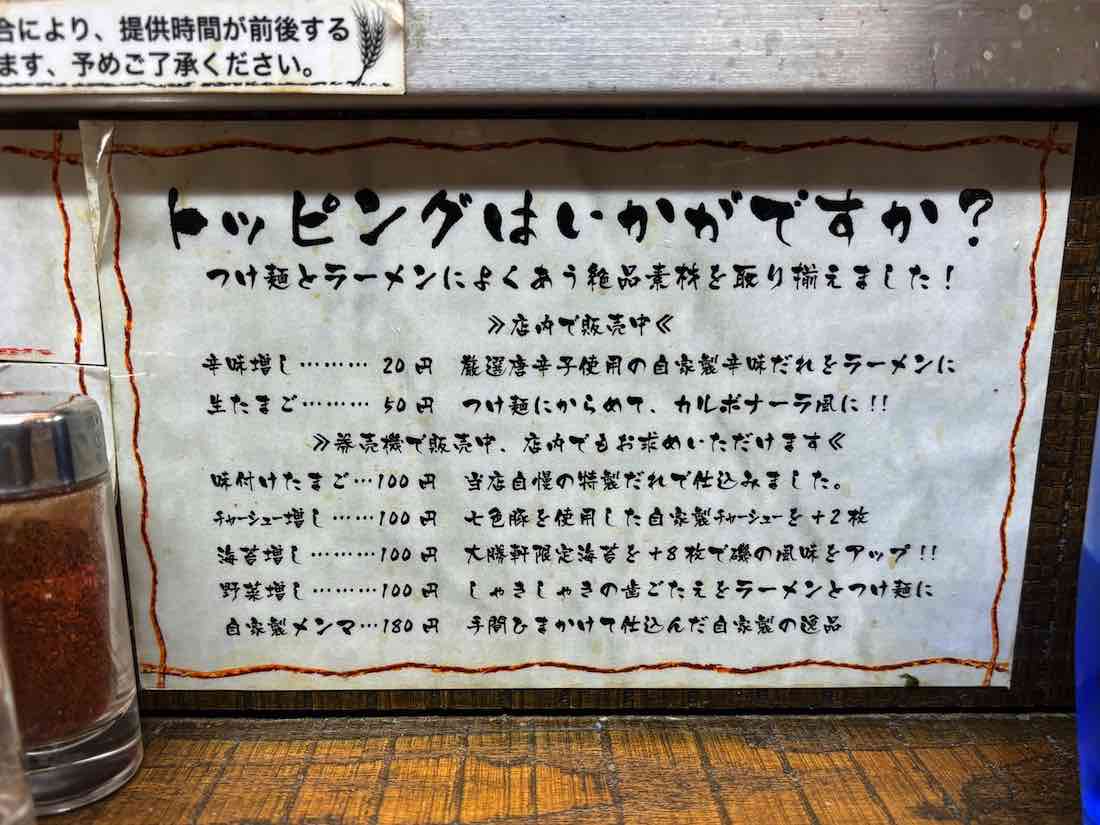 合により、提供時間が前後する
ます、予めご了承ください。
トッピングはいかがですか?
つけ麺とラーメンによくあう絶品素材を取り揃えました!
≫店内で販売中≪
辛味増し……… 20円 厳選唐辛子使用の自家製辛味だれをラーメンに
生たまご……… 50円 つけ麺にからめて、カルボナーラ風に!!
≫券売機で販売中、店内でもお求めいただけます≪
味付けたまご…100円 当店自慢の特製だれで仕込みました。
チャーシュー増し……100円 七色豚を使用した自家製チャーシューを+2枚
海苔増し………100円 大勝軒限定海苔を+8枚で磯の風味をアップ!!
野菜増し………100円 しゃきしゃきの歯ごたえをラーメンとつけ麺に
自家製メンマ…180円 手間ひまかけて仕込んだ自家製の逸品